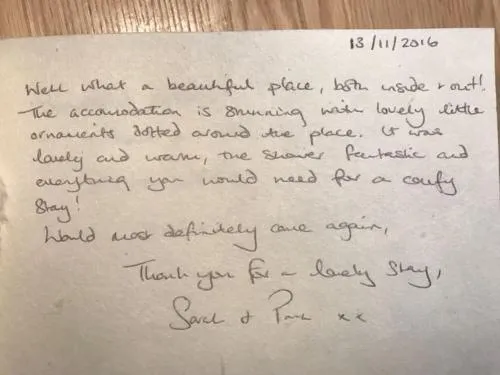 13/11/2016
Well what a beautiful place, both inside + out!
The accomodation is stunning with lovely little
ornaments dotted around the place. It was
lovely and warm, the shower fantastic and
everything you would need for a comfy
stay!
Would most definitely come again,
Thank you for a lovely stay,
Sarah +
xx